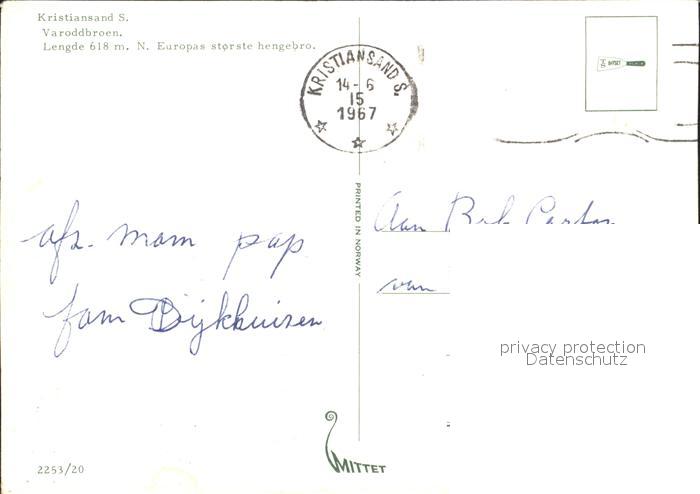 Kristiansand S.
Varoddbroen.
Lengde 618 m. N. Europas største hengebro.
KRISTIANSAND S.
14-6
15
1967
PRINTED IN NORWAY
afz. mam pap
fam Dijkhuizen
Aan
van
privacy protection
Datenschutz
2253/20
MITTET